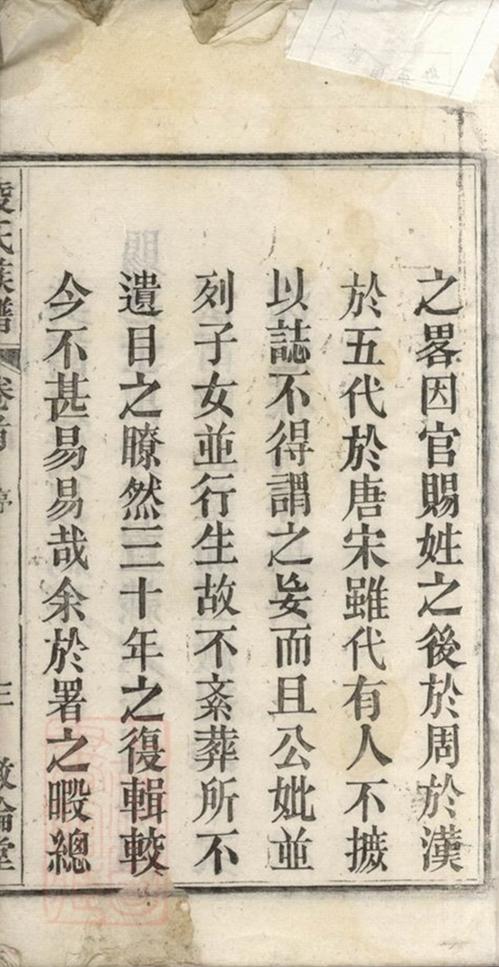 之畧因官賜姓之後於周於漢
於五代於唐宋雖代有人不摭
以誌不得謂之妄而且公妣並
列子女並行生故不紊葬所不
遺目之瞭然三十年之復輯較
今不甚易易哉余於署之暇總
氏族譜 卷首 序 三 敦倫堂